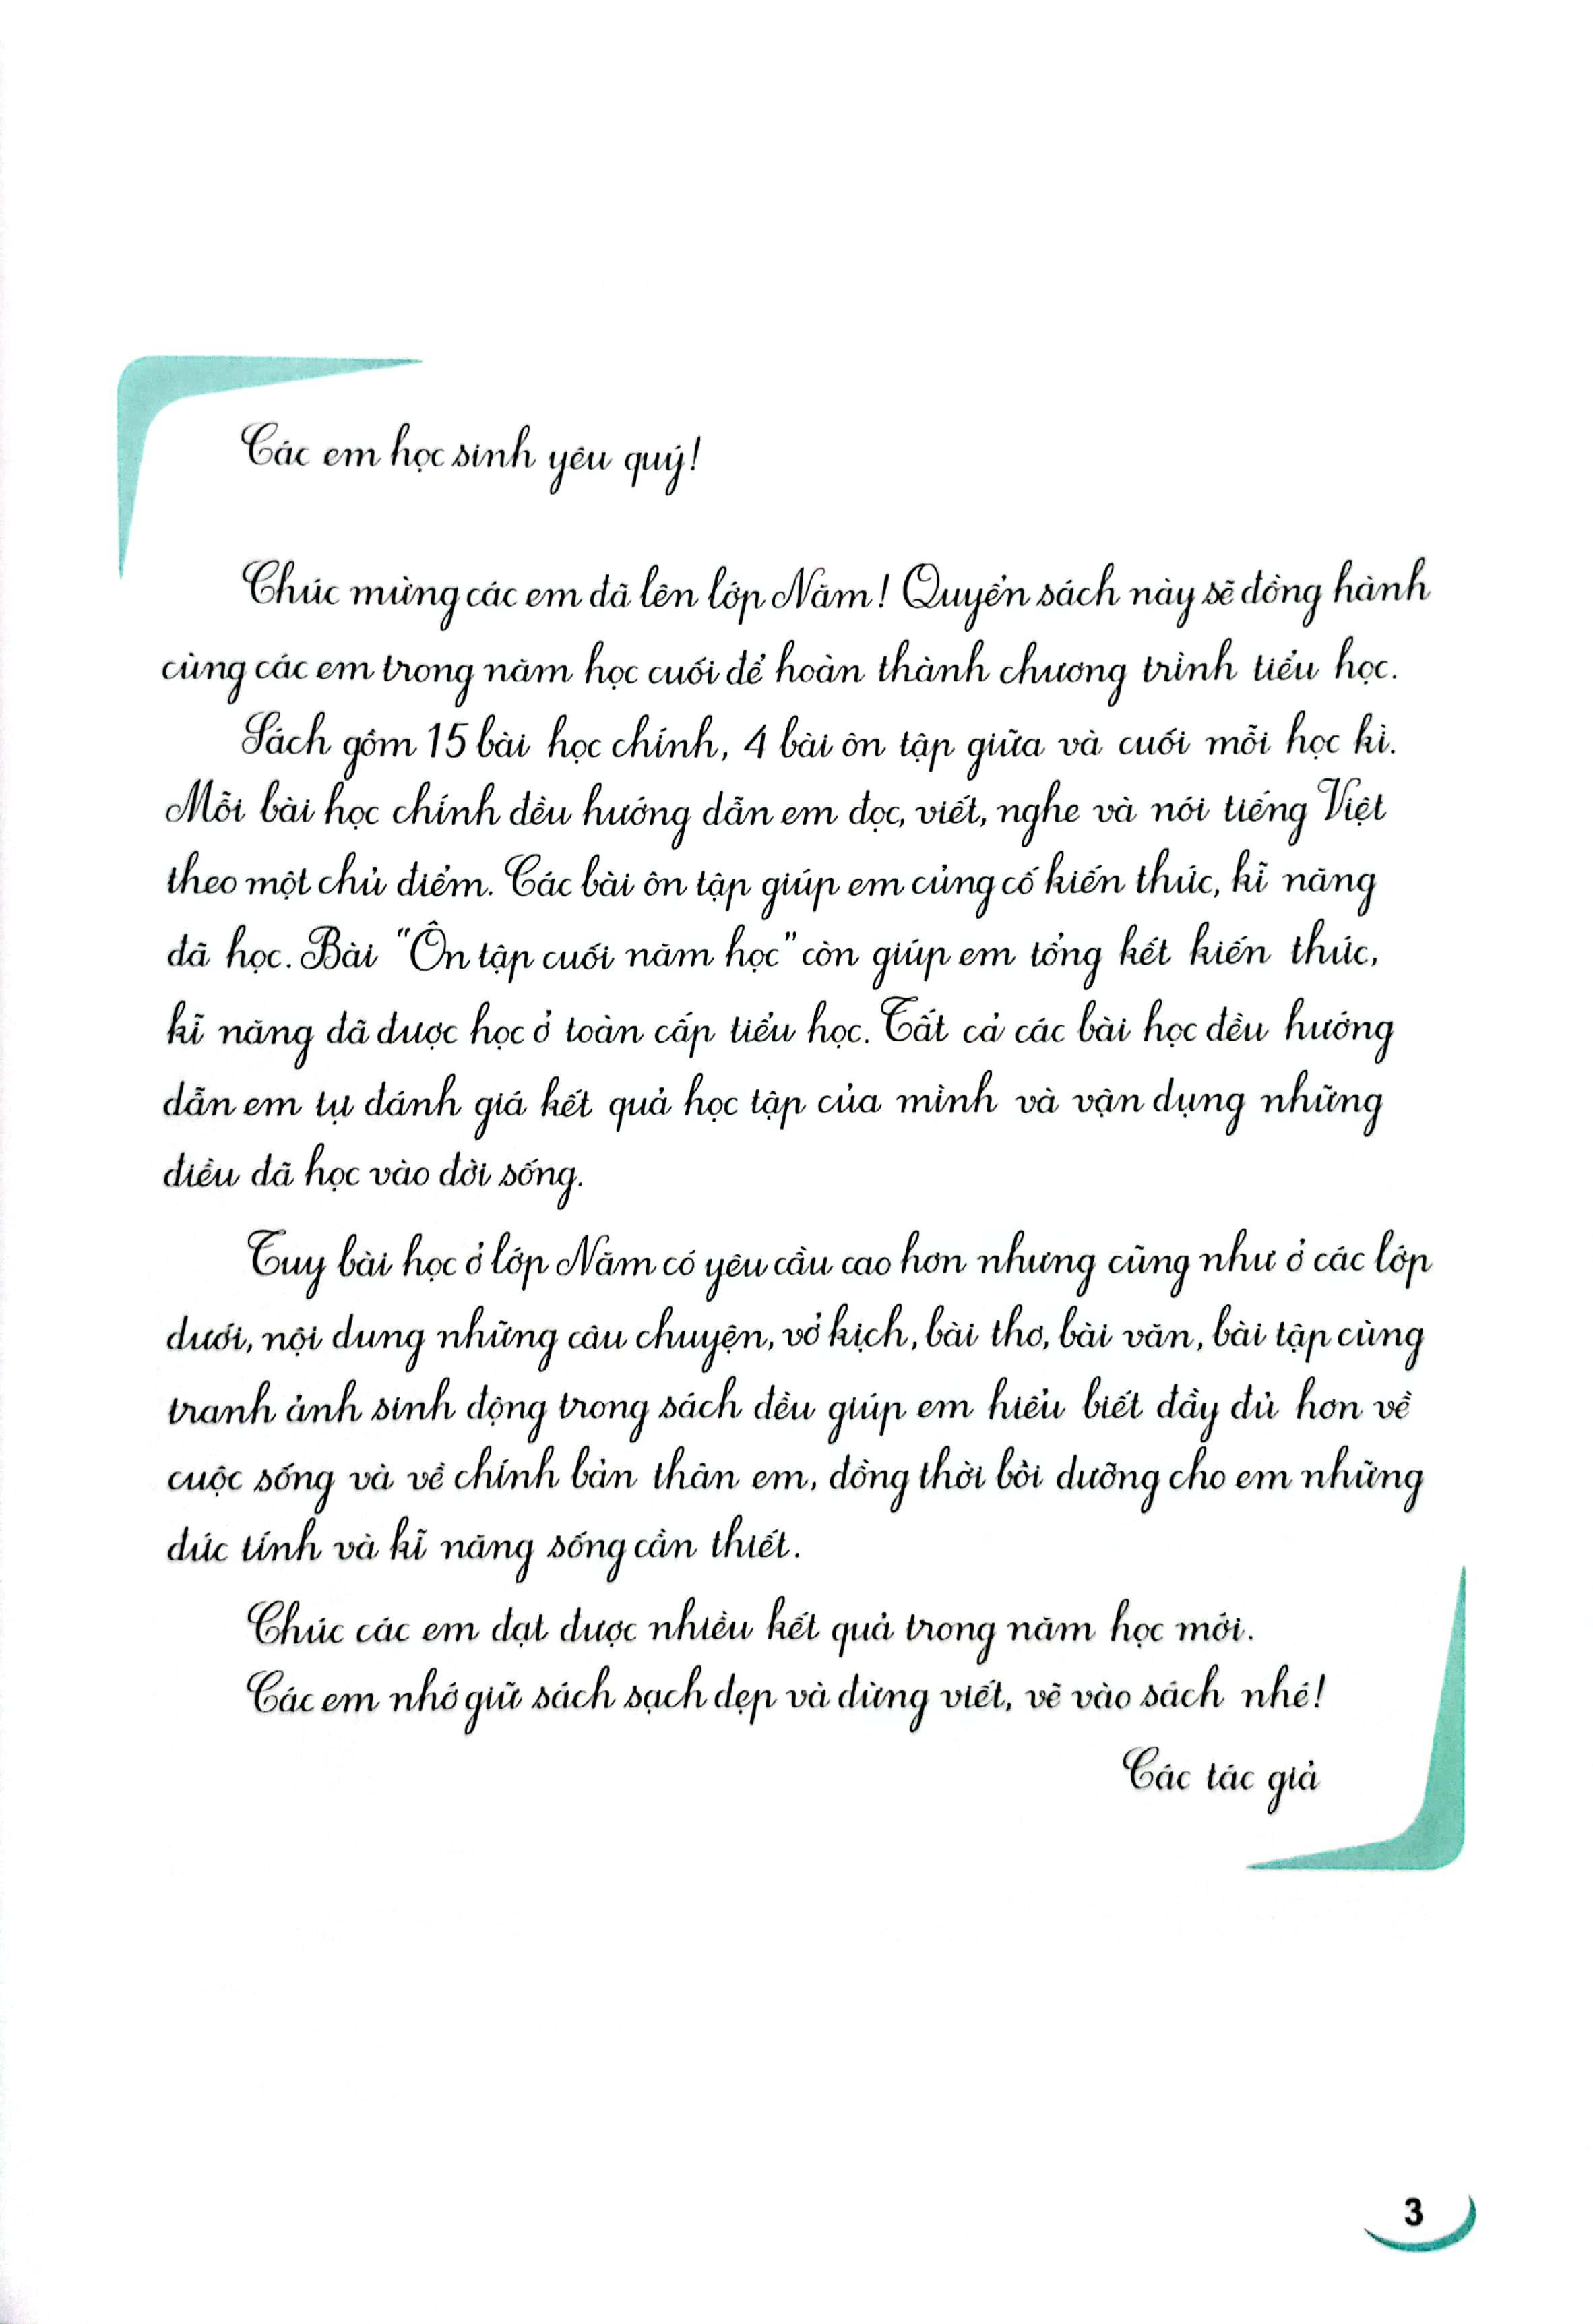 Các em học sinh yêu quý!
Chúc mừng các em đã lên lớp Năm! Quyển sách này sẽ đồng hành
cùng các em trong năm học cuối để hoàn thành chương trình tiểu học.
Sách gồm 15 bài học chính, 4 bài ôn tập giữa và cuối mỗi học kì.
Mỗi bài học chính đều hướng dẫn em đọc, viết, nghe và nói tiếng Việt
theo một chủ điểm. Các bài ôn tập giúp em củng cố kiến thức, kĩ năng
đã học. Bài "Ôn tập cuối năm học" còn giúp em tổng kết kiến thức,
kĩ năng đã được học ở toàn cấp tiểu học. Tất cả các bài học đều hướng
dẫn em tự đánh giá kết quả học tập của mình và vận dụng những
điều đã học vào đời sống.
Tuy bài học ở lớp Năm có yêu cầu cao hơn nhưng cũng như ở các lớp
dưới, nội dung những câu chuyện, vở kịch, bài thơ, bài văn, bài tập cùng
tranh ảnh sinh động trong sách đều giúp em hiểu biết đầy đủ hơn về
cuộc sống và về chính bản thân em, đồng thời bồi dưỡng cho em những
đức tính và kĩ năng sống cần thiết.
Chúc các em đạt được nhiều kết quả trong năm học mới.
Các em nhớ giữ sách sạch đẹp và đừng viết, vẽ vào sách nhé!
Các tác giả
3